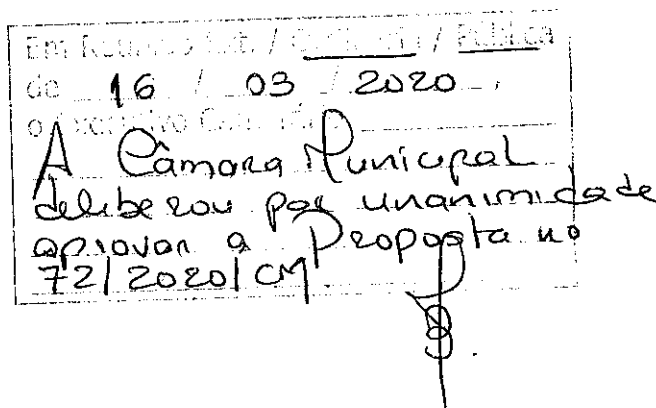 Em Reunião Ext. / Ordinária / Pública
de 16 / 03 / 2020,
o Executivo
A Câmara Municipal
deliberou por unanimidade
aprovar a Proposta nº
72/2020/CM.